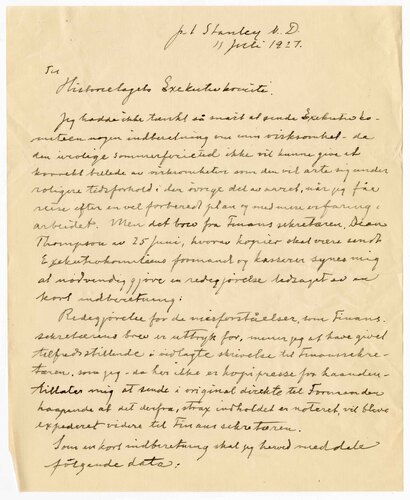 p.t. Stanley N. D.
11 Juli 1927.
Til
Historielagets Exekutivkomite.
Jeg hadde ikke tænkt så snart at sende Exekutivko-
miteen nogen indberetning om min virksomhet - da
den urolige sommerferietid ikke vil kunne give et
korrekt billede av virksomheten som den vil arte sig under
roligere tidsforhold i den øvrige del av aaret, når jeg får
reise efter en vel forberedt plan og med mere erfaring i
arbeidet. Men det brev fra Finans sekretæren, Dean
Thompson av 25 juni, hvorav kopier skal være sendt
Exekutivkomiteens formand og kasserer synes mig
at nødvendiggjøre en redegjørelse ledsaget av en
kort indberetning:
Redegjørelse for de misforståelser, som Finans-
sekretærens brev er uttryk for, mener jeg at have givet
tilfredsstillende i indlagte skrivelse til Finanssekre-
tæren, som jeg - da her ikke er kopipresse for haanden -
tillater mig at sende i original direkte til Formanden
haapende at det derfra, strax indholdet er noteret, vil blive
expederet videre til Finanssekretæren.
Som en kort indberetning skal jeg herved meddele
følgende data: